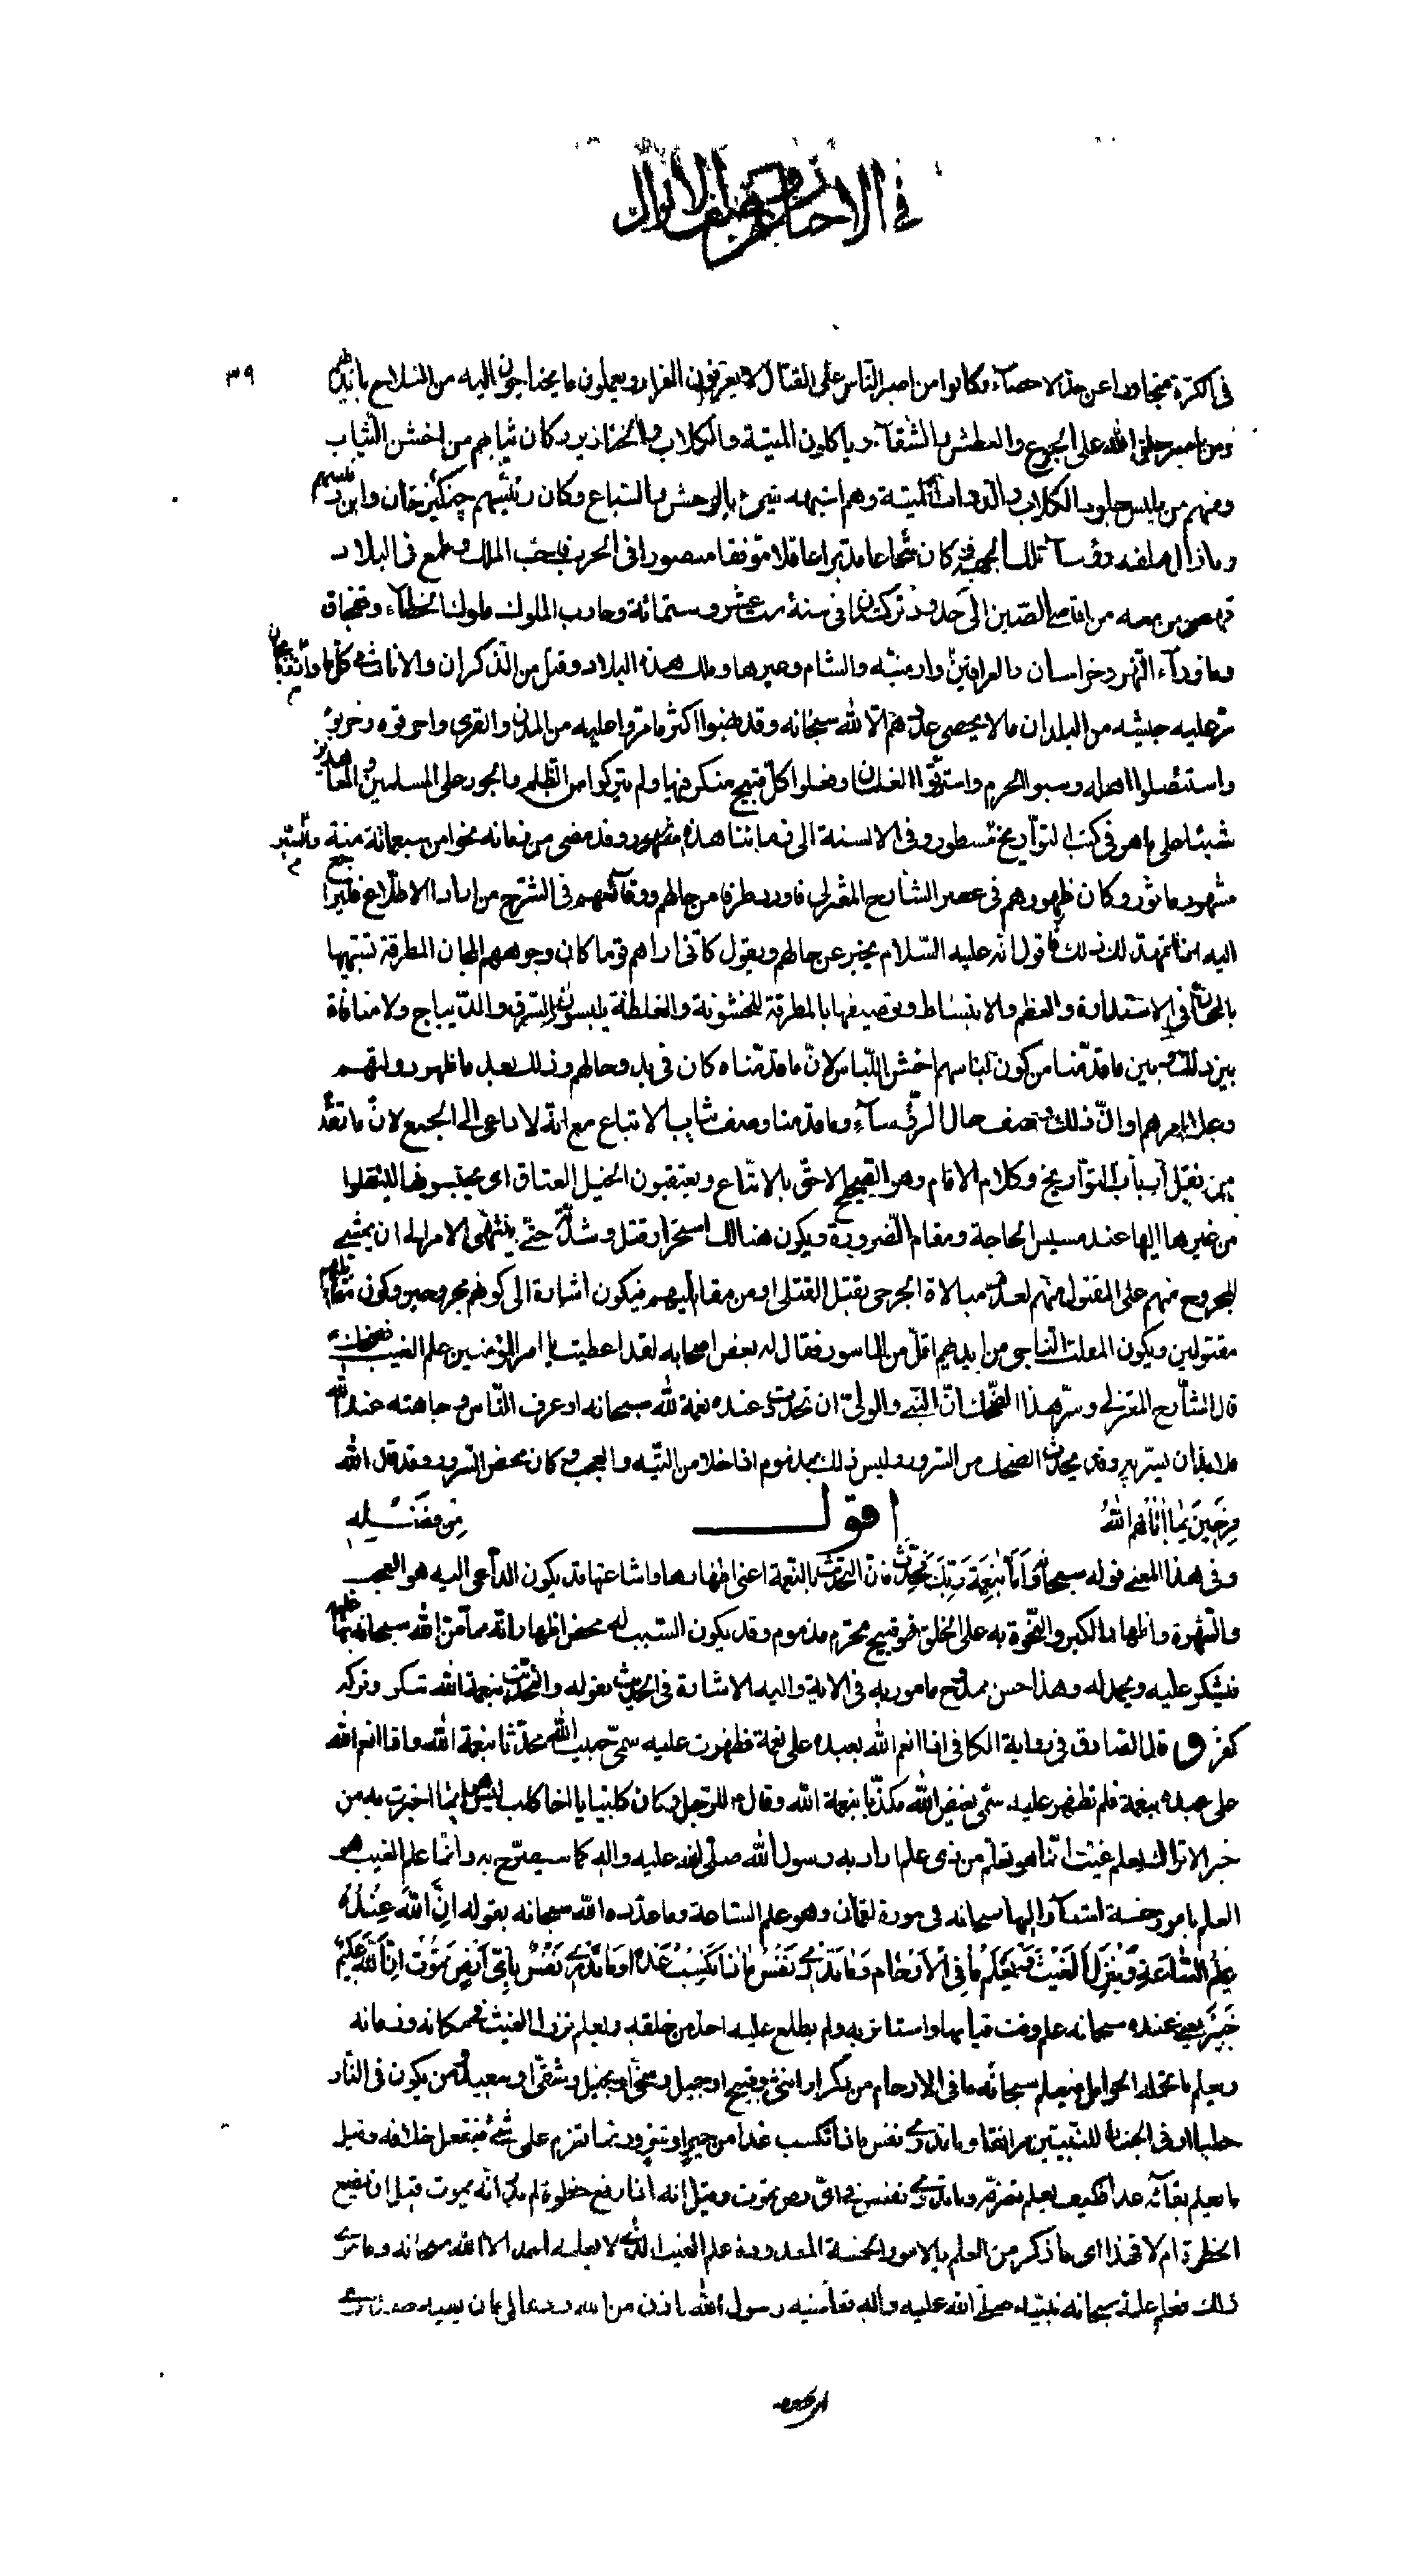 ٣٩
فى الكثرة متجاوزا عن حد الاحصاء وكانوا من اصبر الناس على القتال لا يعرفون الفرار ويعملون ما يحتاجون اليه من السلاح بايديهم
ومن اصبر خلق الله على الجوع والعطش والشقاء ويأكلون الميتة والكلاب والخنازير وكان ثيابهم من اخشن الثياب
ومنهم من يلبس جلود الكلاب والدواب الميتة وهم اشبه شىء بالوحش والسباع وكان رئيسهم چنكيزخان وابن رئيسهم
وما زال سلفه رؤساء تلك الجهة كان شجاعا مدبرا عاقلا موفقا منصورا فى الحرب فاحب الملك وطمع فى البلاد
فنهض بمن معه من اقاصى الصين الى حدود تركستان فى سنة ست عشر وستمائة وحارب الملوك ملوك الخطاء وقفجاق
وما وراء النهر وخراسان والعراقين وارمينيه والشام وغيرها وملك هذه البلاد وقتل من الذكران والاناث فى كل ما
مر عليه جيشه من البلدان ما لا يحصى عددهم الا الله سبحانه وقد نهبوا اكثر ما مروا عليه من المدن والقرى واحرقوه وخربوه
واستئصلوا اهله وسبوا الحرم واسترقوا الغلمان وفعلوا كل قبيح منكر فيها ولم يتركوا من الظلم والجور على المسلمين والمعاهدين
شيئا على ما هو فى كتب التواريخ مسطور وفى الالسنة الى زماننا هذه مشهور وقد مضى من زمانه نحوا من سبعمائة سنة
مشهور ماثور وكان ظهورهم فى عصر الشارح المعتزلى فاورد طرفا من حالهم ووقائعهم فى الشرح من اراد الاطلاع فليراجع
اليه اذا تمهد لك ذلك فاقول انه عليه السلام يخبر عن حالهم ويقول كانى اراهم قوما كان وجوههم المجان المطرقة تشبيهها
بالمجان فى الاستدارة والعظم والانبساط وتوصيفها بالمطرقة للخشونة والغلظة يلبسون السرق والديباج ولا منافاة
بين ذلك وبين ما قدمنا من كون لباسهم اخشن اللباس لان ما قدمناه كان فى بدو حالهم وذلك بعد ما ظهور دولتهم
وعلا امرهم او ان ذلك وصف حال الرؤساء وما قدمنا وصف ثياب الاتباع مع انه لا داعى الى الجمع لان ما تقدم
من نقل ارباب التواريخ وكلام الامام وهو الصحيح الاحق بالاتباع ويعتقبون الخيل العتاق اى يحتبسونها لينتقلوا
من غيرها اليها عند مسيس الحاجة ومقام الضرورة ويكون هناك استحرار قتل وشدته حتى ينتهى الامر الى ان يمشى
المجروح منهم على المقتول منهم لعدم مبالاة الجرحى بقتل القتلى او من مقابليهم فيكون اشارة الى كونهم مجروحين وكون مقابليهم
مقتولين ويكون المفلت الناجى من ايديهم اقل من الماسور فقال له بعض اصحابه لقد اعطيت يا امير المؤمنين علم الغيب فضحك
قال الشارح المعتزلى وسر هذا الضحك ان النبى والولى ان تحدثت عنده نعمة لله سبحانه او عرف الناس وجاهته عند الله
فلا بد ان يسر به وقد يحدث الضحك من السرور وليس ذلك بمذموم اذا خلا من التيه والعجب وكان محض السرور وقد قال الله
فرحين بما اتاهم الله من فضله اقول
وفى هذا المعنى قوله سبحانه واما بنعمة ربك فحدث فان التحدث بالنعمة اعنى اظهارها واشاعتها قد يكون الداعى اليه هو العجب
والشهرة واظهار الكبر والنخوة به على الخلق فهو قبيح محرم مذموم وقد يكون السبب له محض اظهار انه مما من الله سبحانه بها عليه
فيشكر عليه ويحمد له وهذا حسن ممدوح مامور به فى الاية واليه الاشارة فى الحديث بقوله والتحدث بنعمة الله شكر وتركه
كفر وقال الصادق فى رواية الكافى اذا انعم الله بعبده على نعمة فظهرت عليه سمى حبيب الله محدثا بنعمة الله واذا انعم الله
على عبده بنعمة فلم تظهر عليه سمى بغيض الله مكذبا بنعمة الله وقال للرجل وكان كلبيا يا اخا كلب ليس هو
خبر الاتراك بعلم غيب انما هو تعلم من ذى علم اراد به رسول الله صلى الله عليه واله كما سيصرح به وانما علم الغيب هو
العلم بامور خمسة اشار اليها سبحانه فى سورة لقمان وهو علم الساعة وما عدده الله سبحانه بقوله ان الله عنده
علم الساعة وينزل الغيث ويعلم ما فى الارحام وما تدرى نفس ماذا تكسب غدا وما تدرى نفس باى ارض تموت ان الله عليم
خبير يعنى عنده سبحانه علم وقت قيامها واستاثر به ولم يطلع عليه احد من خلقه ويعلم نزول الغيث فى مكانه وزمانه
ويعلم ما تحمله الحوامل فيعلم سبحانه ما فى الارحام من ذكر او انثى وقبيح او جميل وسخى او بخيل وشقى او سعيد ومن يكون فى النار
حطبا او فى الجنان للنبيين مرافقا وما تدرى نفس ماذا تكسب غدا من خير او شر وربما تعزم على شىء فتفعل خلافه وقيل
ما يعلم بقائه غدا فكيف يعلم تصرفه وما تدرى نفس فى اى ارض تموت وقيل انه اذا رفع خطوة لم يدر انه يموت قبل ان يضع
الخطوة ام لا فهذا اى ما ذكر من العلم بالامور الخمسة المعدودة علم الغيب الذى لا يعلمه احد الا الله سبحانه وما سوى
ذلك فعلم علمه سبحانه نبيه صلى الله عليه واله فعلمنيه رسول الله باذن من الله